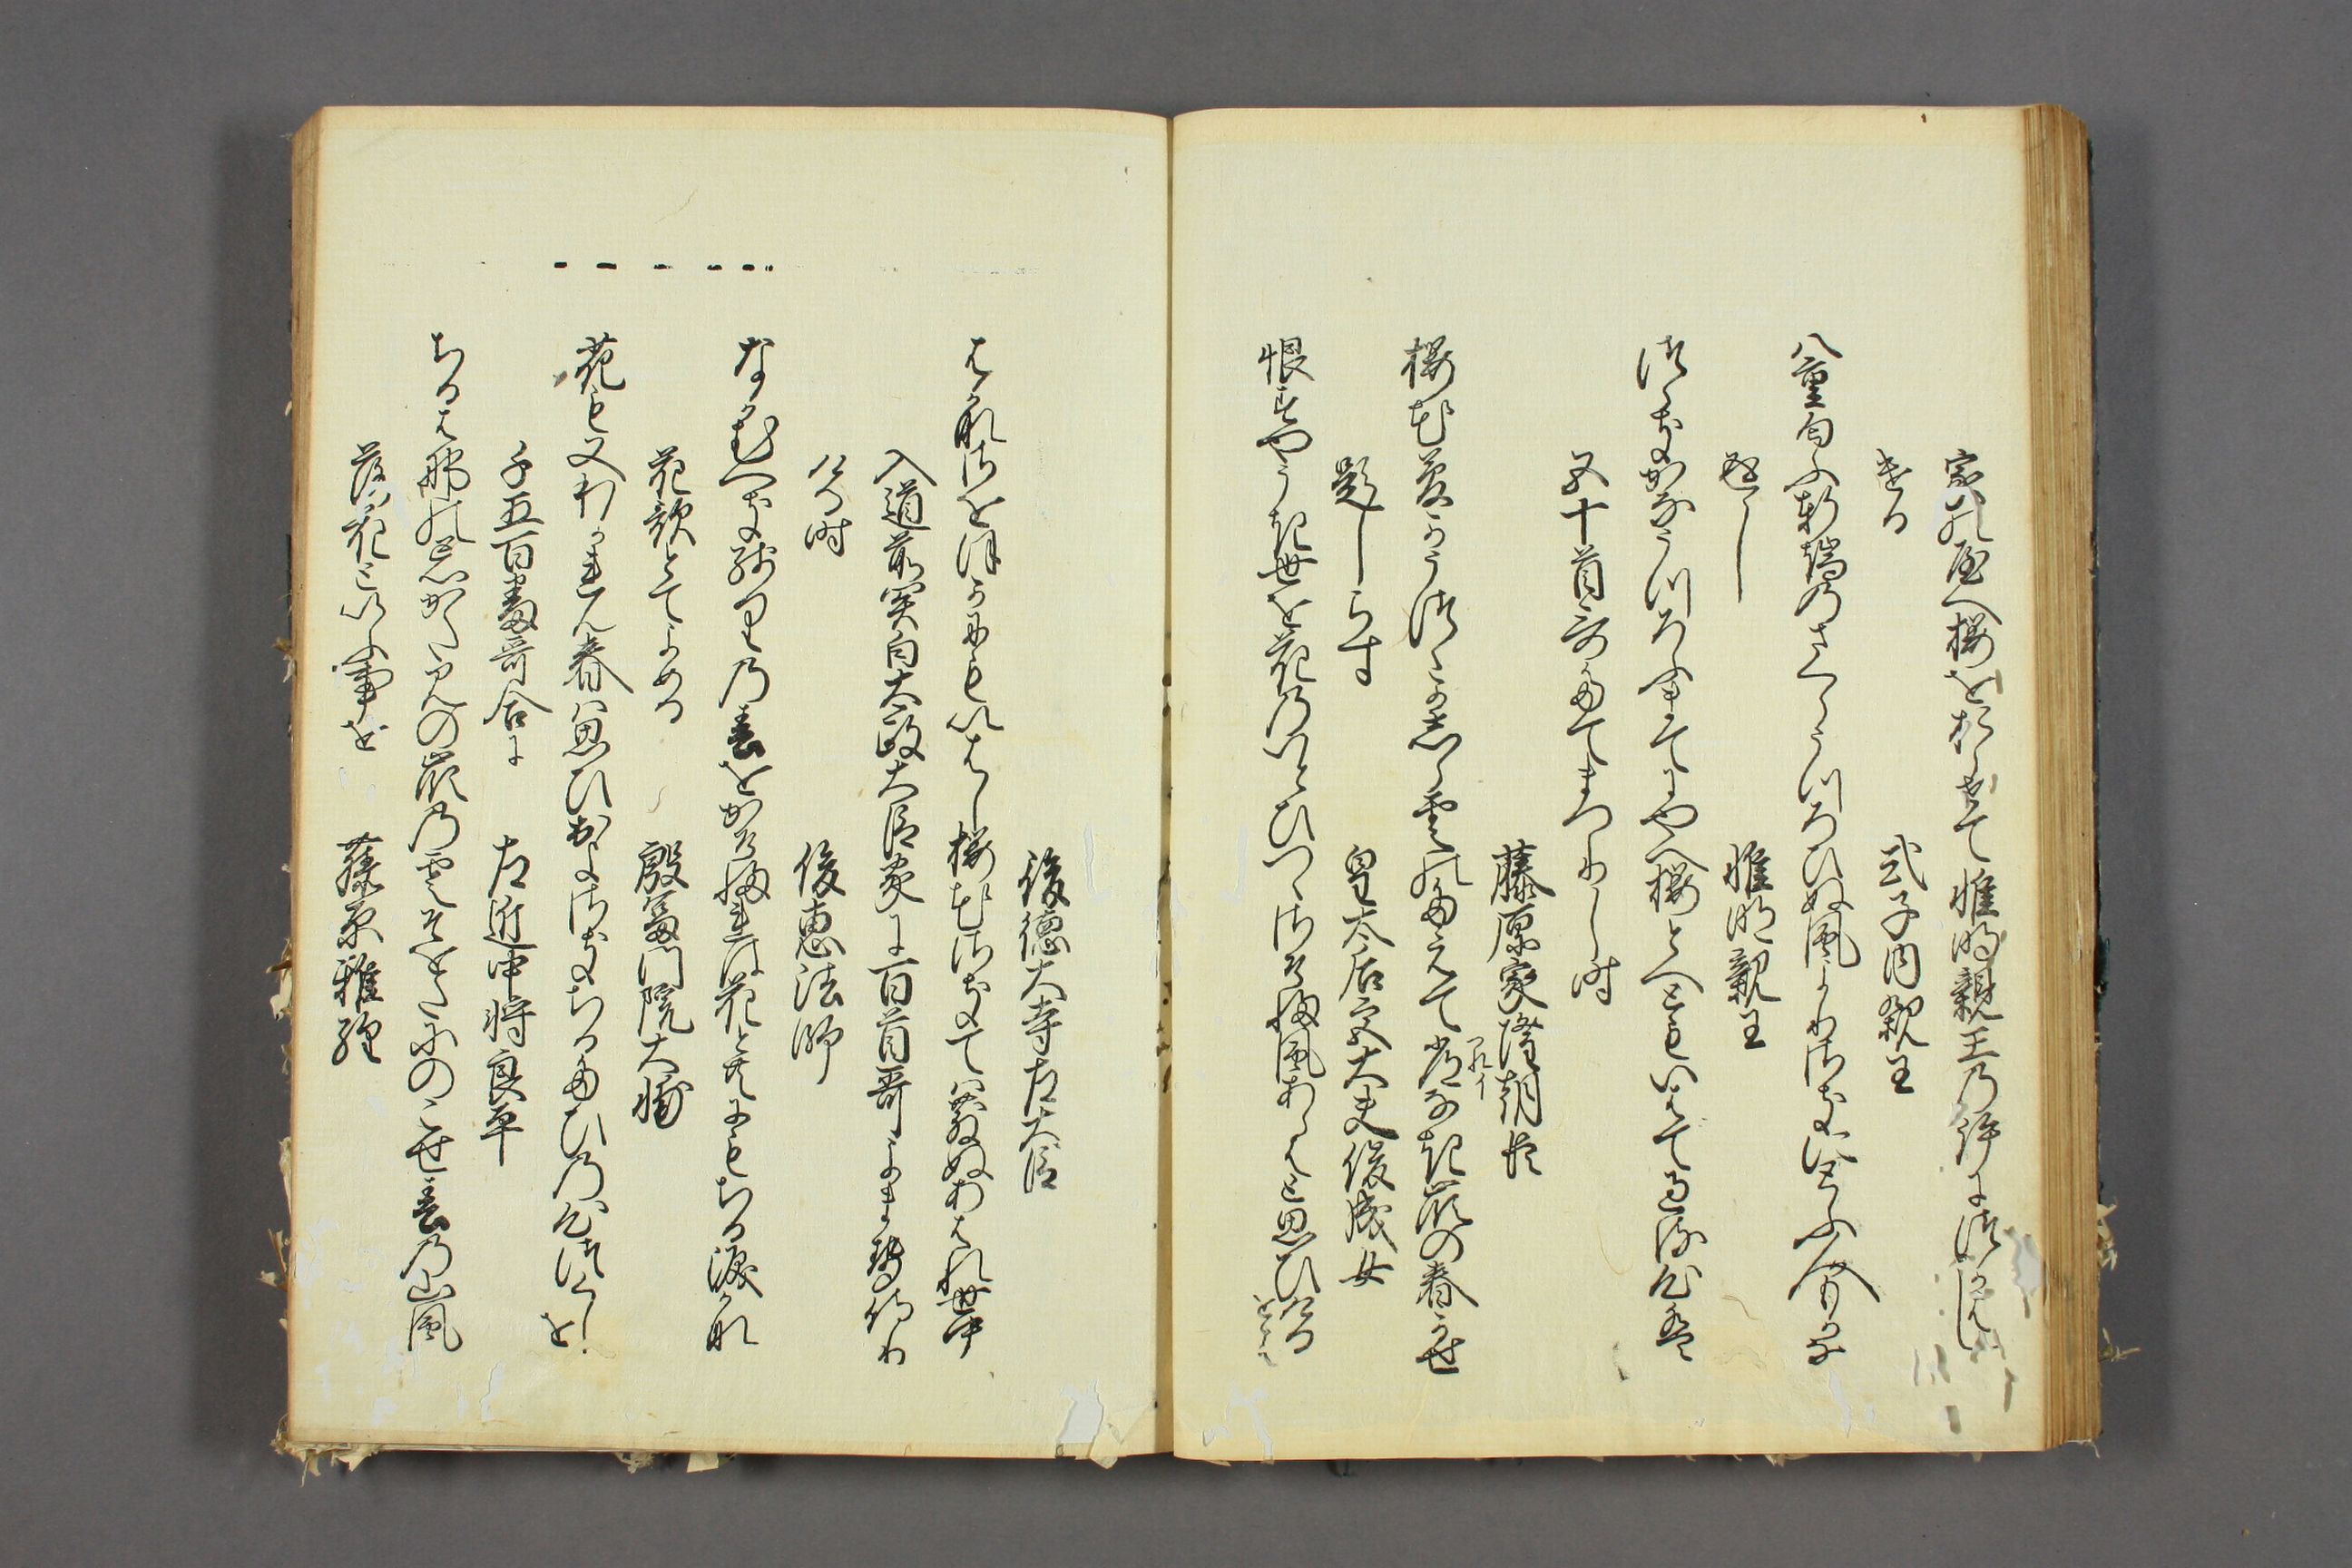 家の八重桜をおらせて惟明親王の許につかはし
ける
式子内親王
八重匂ふ軒端のさくらうつろひぬ風よりさきにとふ人もかな
返し
惟明親王
つらきかなうつろふまてに八重桜とへともいはて過る心は
五十首哥たてまつりし時
藤原家隆朝臣
桜花夢かうつゝか志ら雲のたえて常なき峯の春かせ
つれイ
題しらす
皇太后宮大夫俊成女
恨すやうき世を花のいとひつゝさそふ風あらはと思ひける
をは
後徳大寺左大臣
はかなさをほかにもいはし桜花さきては散ぬあはれ世中
入道前関白太政大臣家に百首哥よませ侍り
ける時
俊恵法師
なかむへき残りの春をかそふれは花とともにもちる涙かな
花歌とてよめる
殷富門院大輔
花も又わかれん春は思ひ出よさきちるたひの心つくしを
千五百番哥合に
左近中将良平
ちるはなの忘かたみの峯の雲そをたにのこせ春の山風
落花といふ事を
藤原雅経